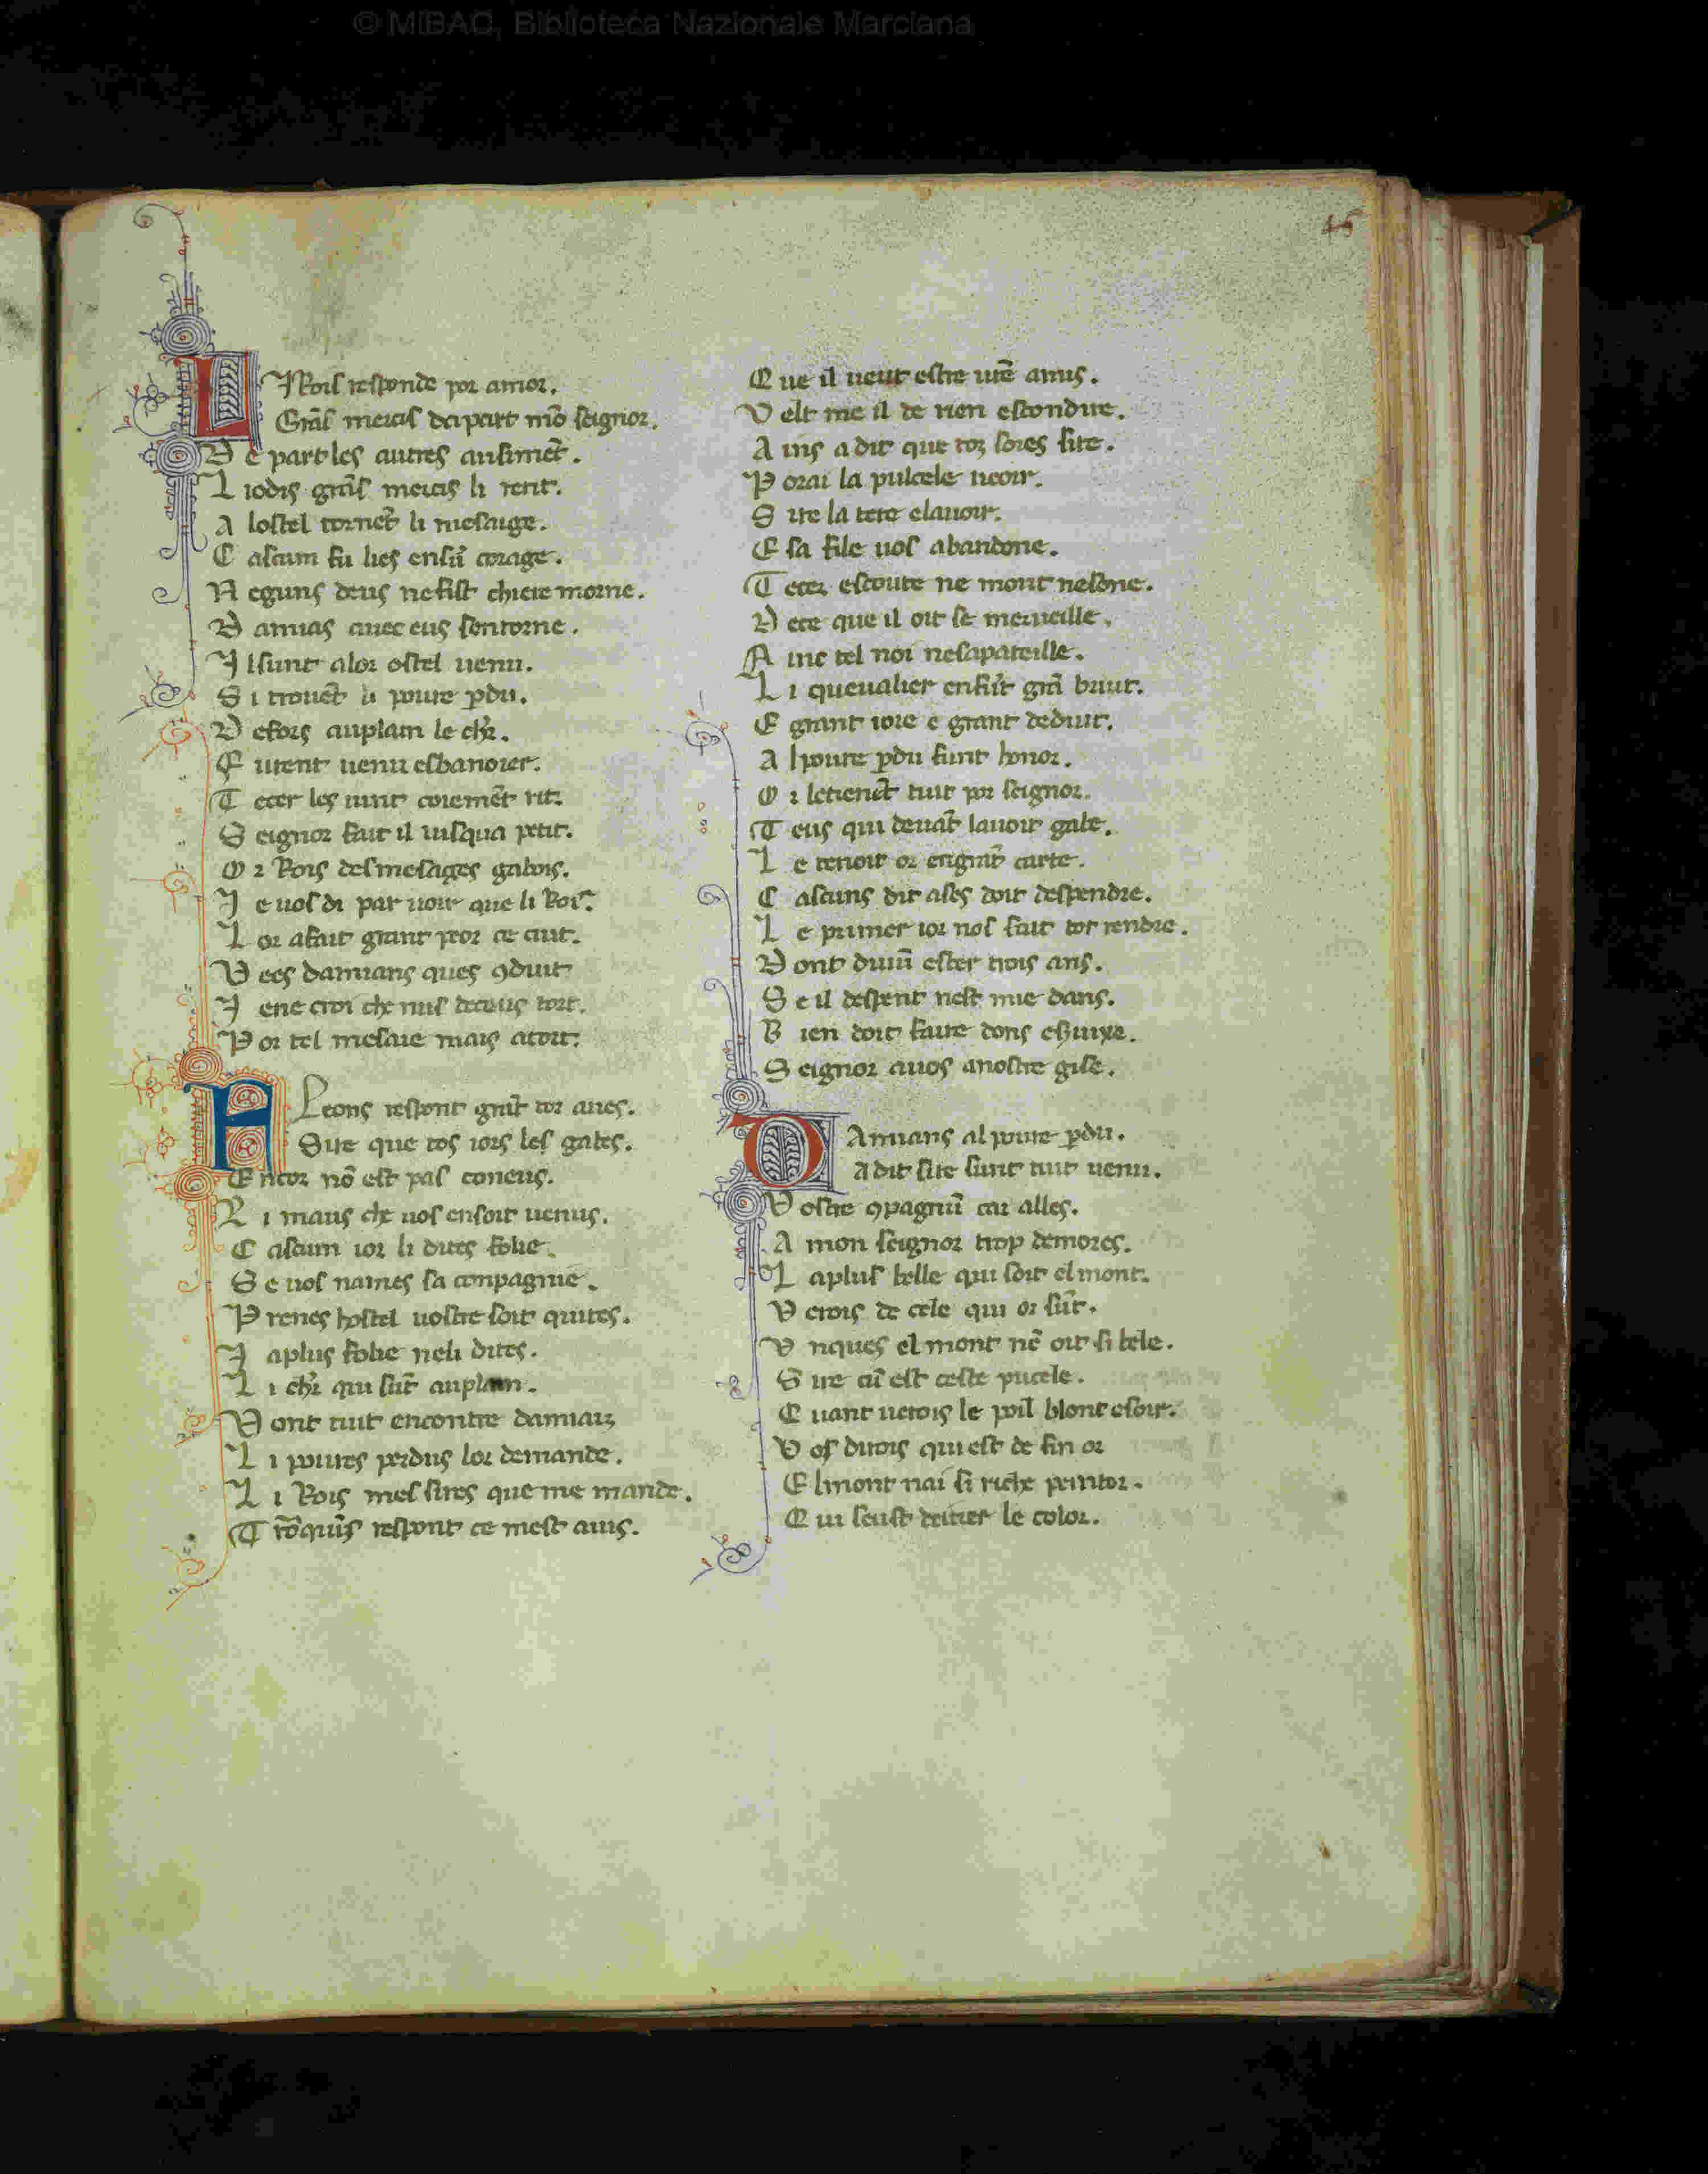 © MiBAC, Biblioteca Nazionale Marciana
45
LI Rois responde por amor.
Grās mercis dapart mō seignor.
De part les autres ausimēt.
Li rois grās mercis li rent.
A lostel tornēt li mesaige.
Cascum fu lies ensū corage.
Neguns deus nefist chiere morne.
Damias auec eus sentorne.
Il sunt alor ostel uenu.
Si trouēt li poure pdu.
Defors auplain le chr.
Furent uenu esbanoier.
Tecer les uint coiemēt rit.
Seignor fait il iusqua petit.
Or Rois desmesages gabois.
Ie uos di par uoir que li Rois.
Lor afait grant peor ce cuit.
Vees damians ques 9duit
Iene croi che nus deceus tort.
Por tel mesaie mais atort.
ALeons respont grāt tor aues.
Sire que tos iors les gabes.
Encor nō est pas coneus.
Ri maus che uos ensoit uenus.
Cascum ior li dites folie.
Se uos names sa conpagnie.
Prenes hostel uostre soit quites.
Iaplus folie neli dites.
Li chr qui sūt auplain.
Vont tuit encontre damianz
Li poures perdus lor demande.
Li Rois mes sires que me mande.
Trōquīs respont ce mest auis.
Que il ueut estre urē amis.
Velt me il de rien escondire.
Ains a dit que toz sores sire.
Porai la pulcele ueoir.
Sire la tere elauoir.
E sa file uos abandone.
Tecer escoute ne mont nesone.
Dece que il oit se merueille.
Ainc tel noi nesapareille.
Li queualier enfūt grā bruit.
E grant ioie e grant deduit.
Al poure pdu funt honor.
Or letienēt tuit por seignor.
Teus qui deuāt lauoit gabe.
Le tenoit or engrāt carte.
Cascuns dit ases doit despendre.
Le primer ior nos fait tot rendre.
Dont duiū ester trois ans.
Se il despent nest mie dans.
Bien doit faire dons
Seignor auos anostre gise.
DAmians al poure pdu.
A dit sire sunt tuit uenu.
Vostre 9pagnū car alles.
A mon seignor trop demores.
Laplus belle qui soit el mont.
Verois de cele qui or sūt.
Vnques el mont nē oit si bele.
Sire cū est ceste pucele.
Quant uerois le poil blont esoir.
Vos dirois qui est de fin or
Elmont nai si riche peintor.
Qui seust deitier le color.